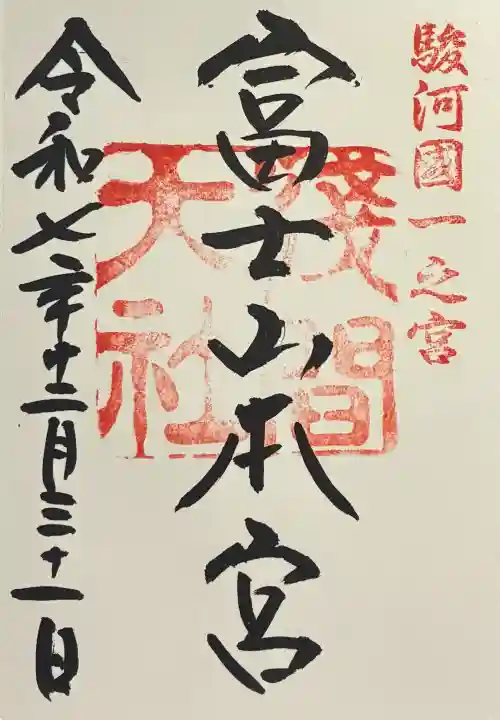 駿河國一之宮
富士山本宮
淺間
大社
令和七年十二月三十一日